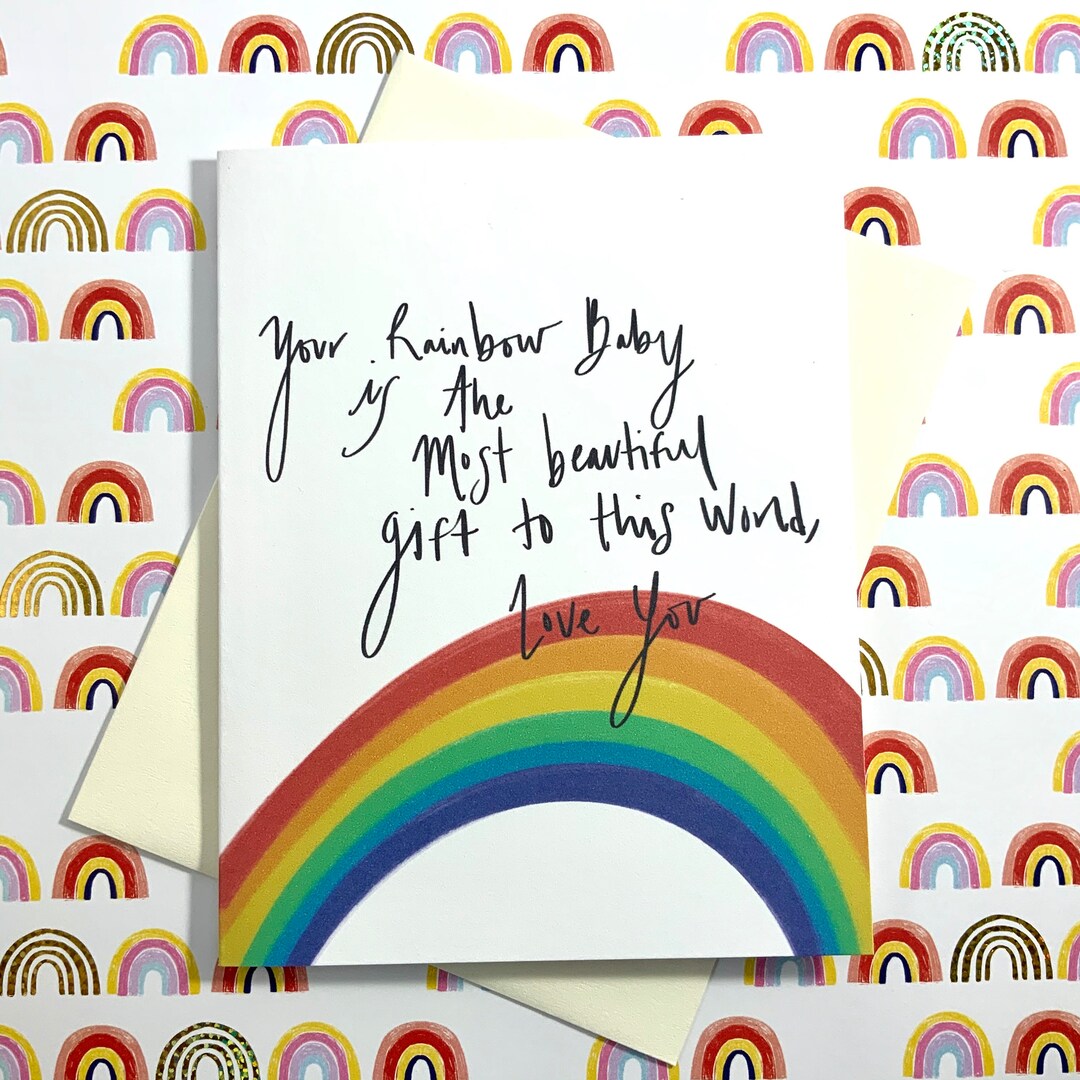 Your Rainbow Baby
is the
Most beautiful
gift to this World,
Love You